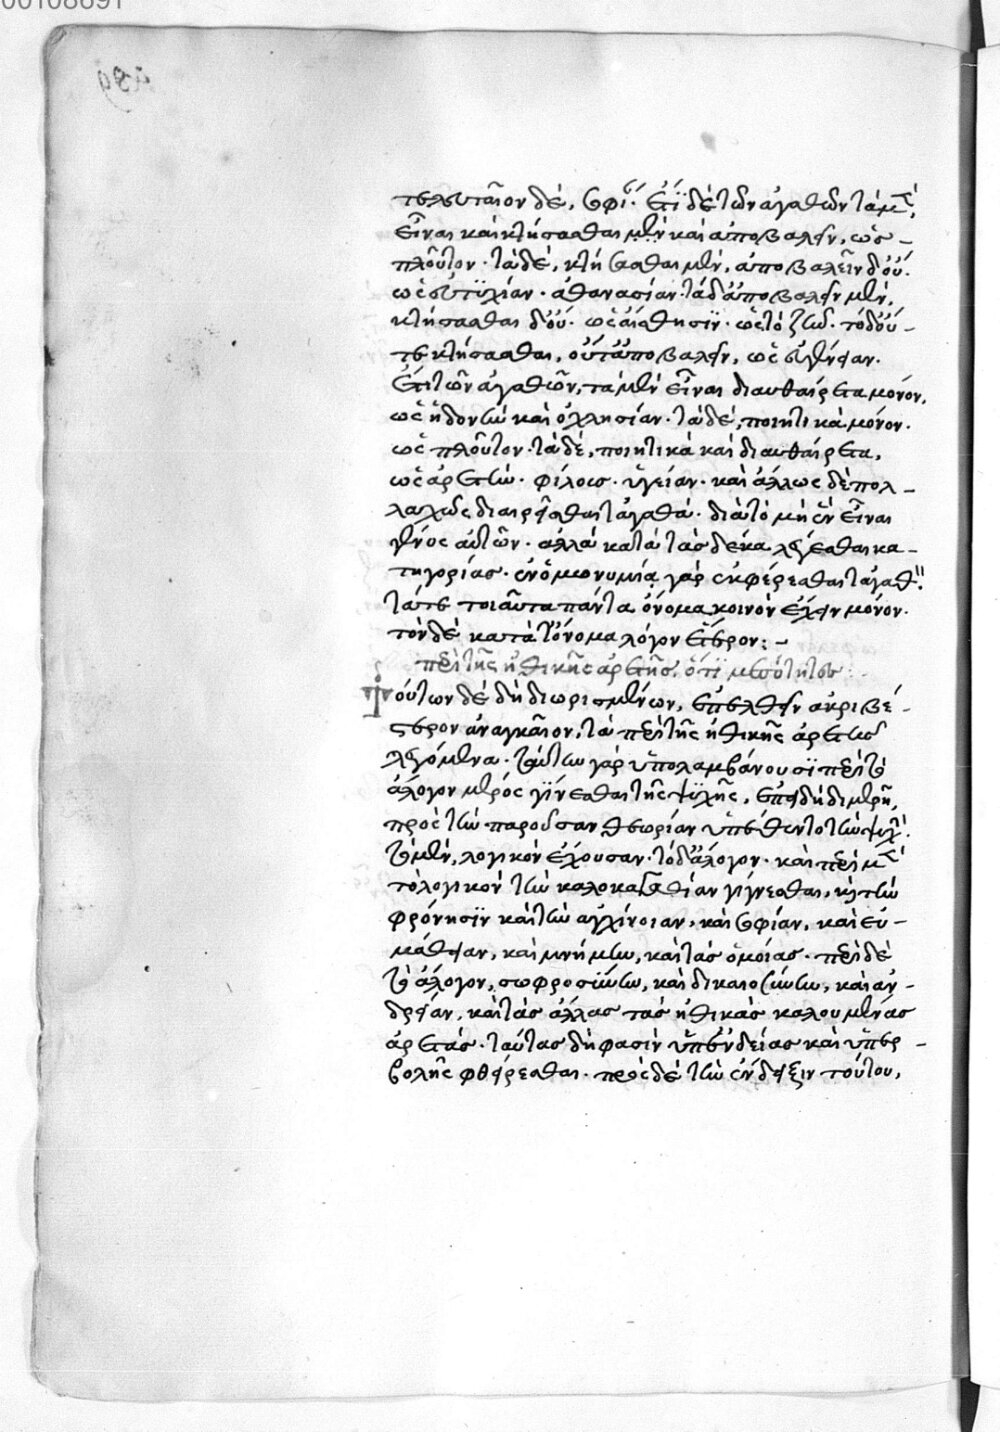 00108691
τελευταῖον δέ, σοφί. ἔτι δὲ τῶν ἀγαθῶν τὰ μὲν,
εἶναι καὶ κτήσασθαι μὲν καὶ ἀποβαλεῖν, ὡς –
πλοῦτον· τὰ δὲ, κτήσασθαι μὲν, ἀποβαλεῖν δ' οὔ.
ὡς εὐτυχίαν· ἀθανασίαν· τὰ δ' ἀποβαλεῖν μὲν,
κτήσασθαι δ' οὔ· ὡς αἴσθησιν· ὡς τὸ ζῶ· τὸ δ' οὔ –
τε κτήσασθαι, οὔτ' ἀποβαλεῖν, ὡς εὐγένειαν.
ἔτι τῶν ἀγαθῶν, τὰ μὲν εἶναι διαυθαίρετα μόνον,
ὡς ἡδονὴν καὶ ἀοχλησίαν· τὰ δὲ, ποιητικὰ μόνον·
ὡς πλοῦτον· τὰ δὲ, ποιητικὰ καὶ διαυθαίρετα,
ὡς ἀρετὴν· φίλους· ὑγείαν· καὶ ἄλλως δὲ πολ –
λαχῶς διαιρεῖσθαι τἀγαθά· διὰ τὸ μὴ ἓν εἶναι
γένος αὐτῶν· ἀλλὰ κατὰ τὰς δέκα λέγεσθαι κα –
τηγορίας· ἐν ὁμωνυμίᾳ γὰρ ἐκφέρεσθαι τἀγαθόν·
τά τε τοιαῦτα πάντα ὄνομα κοινὸν ἔχειν μόνον·
τὸν δὲ κατὰ τοὔνομα λόγον ἕτερον: –
περὶ τῆς ἠθικῆς ἀρετῆς, ὅτι μεσότητες:
Τούτων δὲ δὴ διωρισμένων, ἐπελθεῖν ἀκριβέ –
στερον ἀναγκαῖον, τὰ περὶ τῆς ἠθικῆς ἀρετῆς
λεγόμενα· ταύτην γὰρ ὑπολαμβάνουσι περὶ τὸ
ἄλογον μέρος γίνεσθαι τῆς ψυχῆς, ἐπειδὴ διμερῆ,
πρὸς τὴν παροῦσαν θεωρίαν ὑπέθεντο τὴν ψυχὴν·
τὸ μὲν, λογικὸν ἔχουσαν· τὸ δ' ἄλογον· καὶ περὶ μὲν
τὸ λογικὸν τὴν καλοκἀγαθίαν γίγνεσθαι, καὶ τὴν
φρόνησιν καὶ τὴν ἀγχίνοιαν, καὶ σοφίαν, καὶ εὐ –
μάθειαν, καὶ μνήμην, καὶ τὰς ὁμοίας· περὶ δὲ
τὸ ἄλογον, σωφροσύνην, καὶ δικαιοσύνην, καὶ ἀν –
δρείαν, καὶ τὰς ἄλλας τὰς ἠθικὰς καλουμένας
ἀρετάς· ταύτας δή φασὶν ὑπ' ἐνδείας καὶ ὑπερ –
βολῆς φθείρεσθαι· πρὸς δὲ τὴν ἔνδειξιν τούτου,